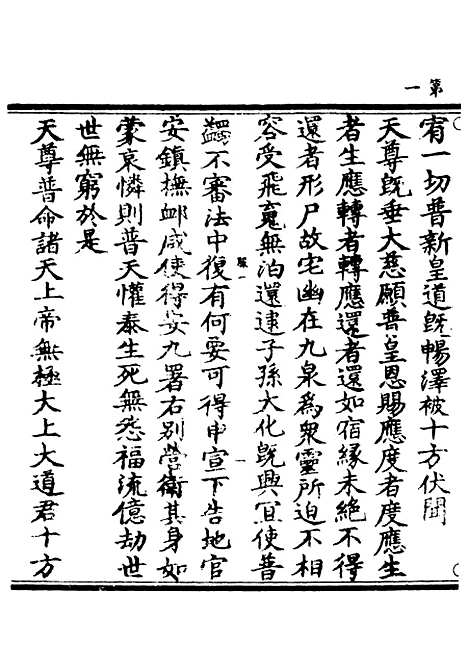 第一
宥一切普新皇道既暢澤被十方伏聞
天尊既垂大慈願普皇恩賜應度者度應生
者生應轉者轉應還者還如宿緣未絶不得
還者形尸故宅幽在九泉爲衆靈所迫不相
容受飛䰟無泊還逮子孫大化既興冝使普
蠲不審法中復有何要可得申宣下告地官
安鎮撫䘏咸使得安九署右別營衛其身如
蒙哀憐則普天懽泰生死無怨福流億劫世
世無窮於是
天尊普命諸天上帝無極大上大道君十方